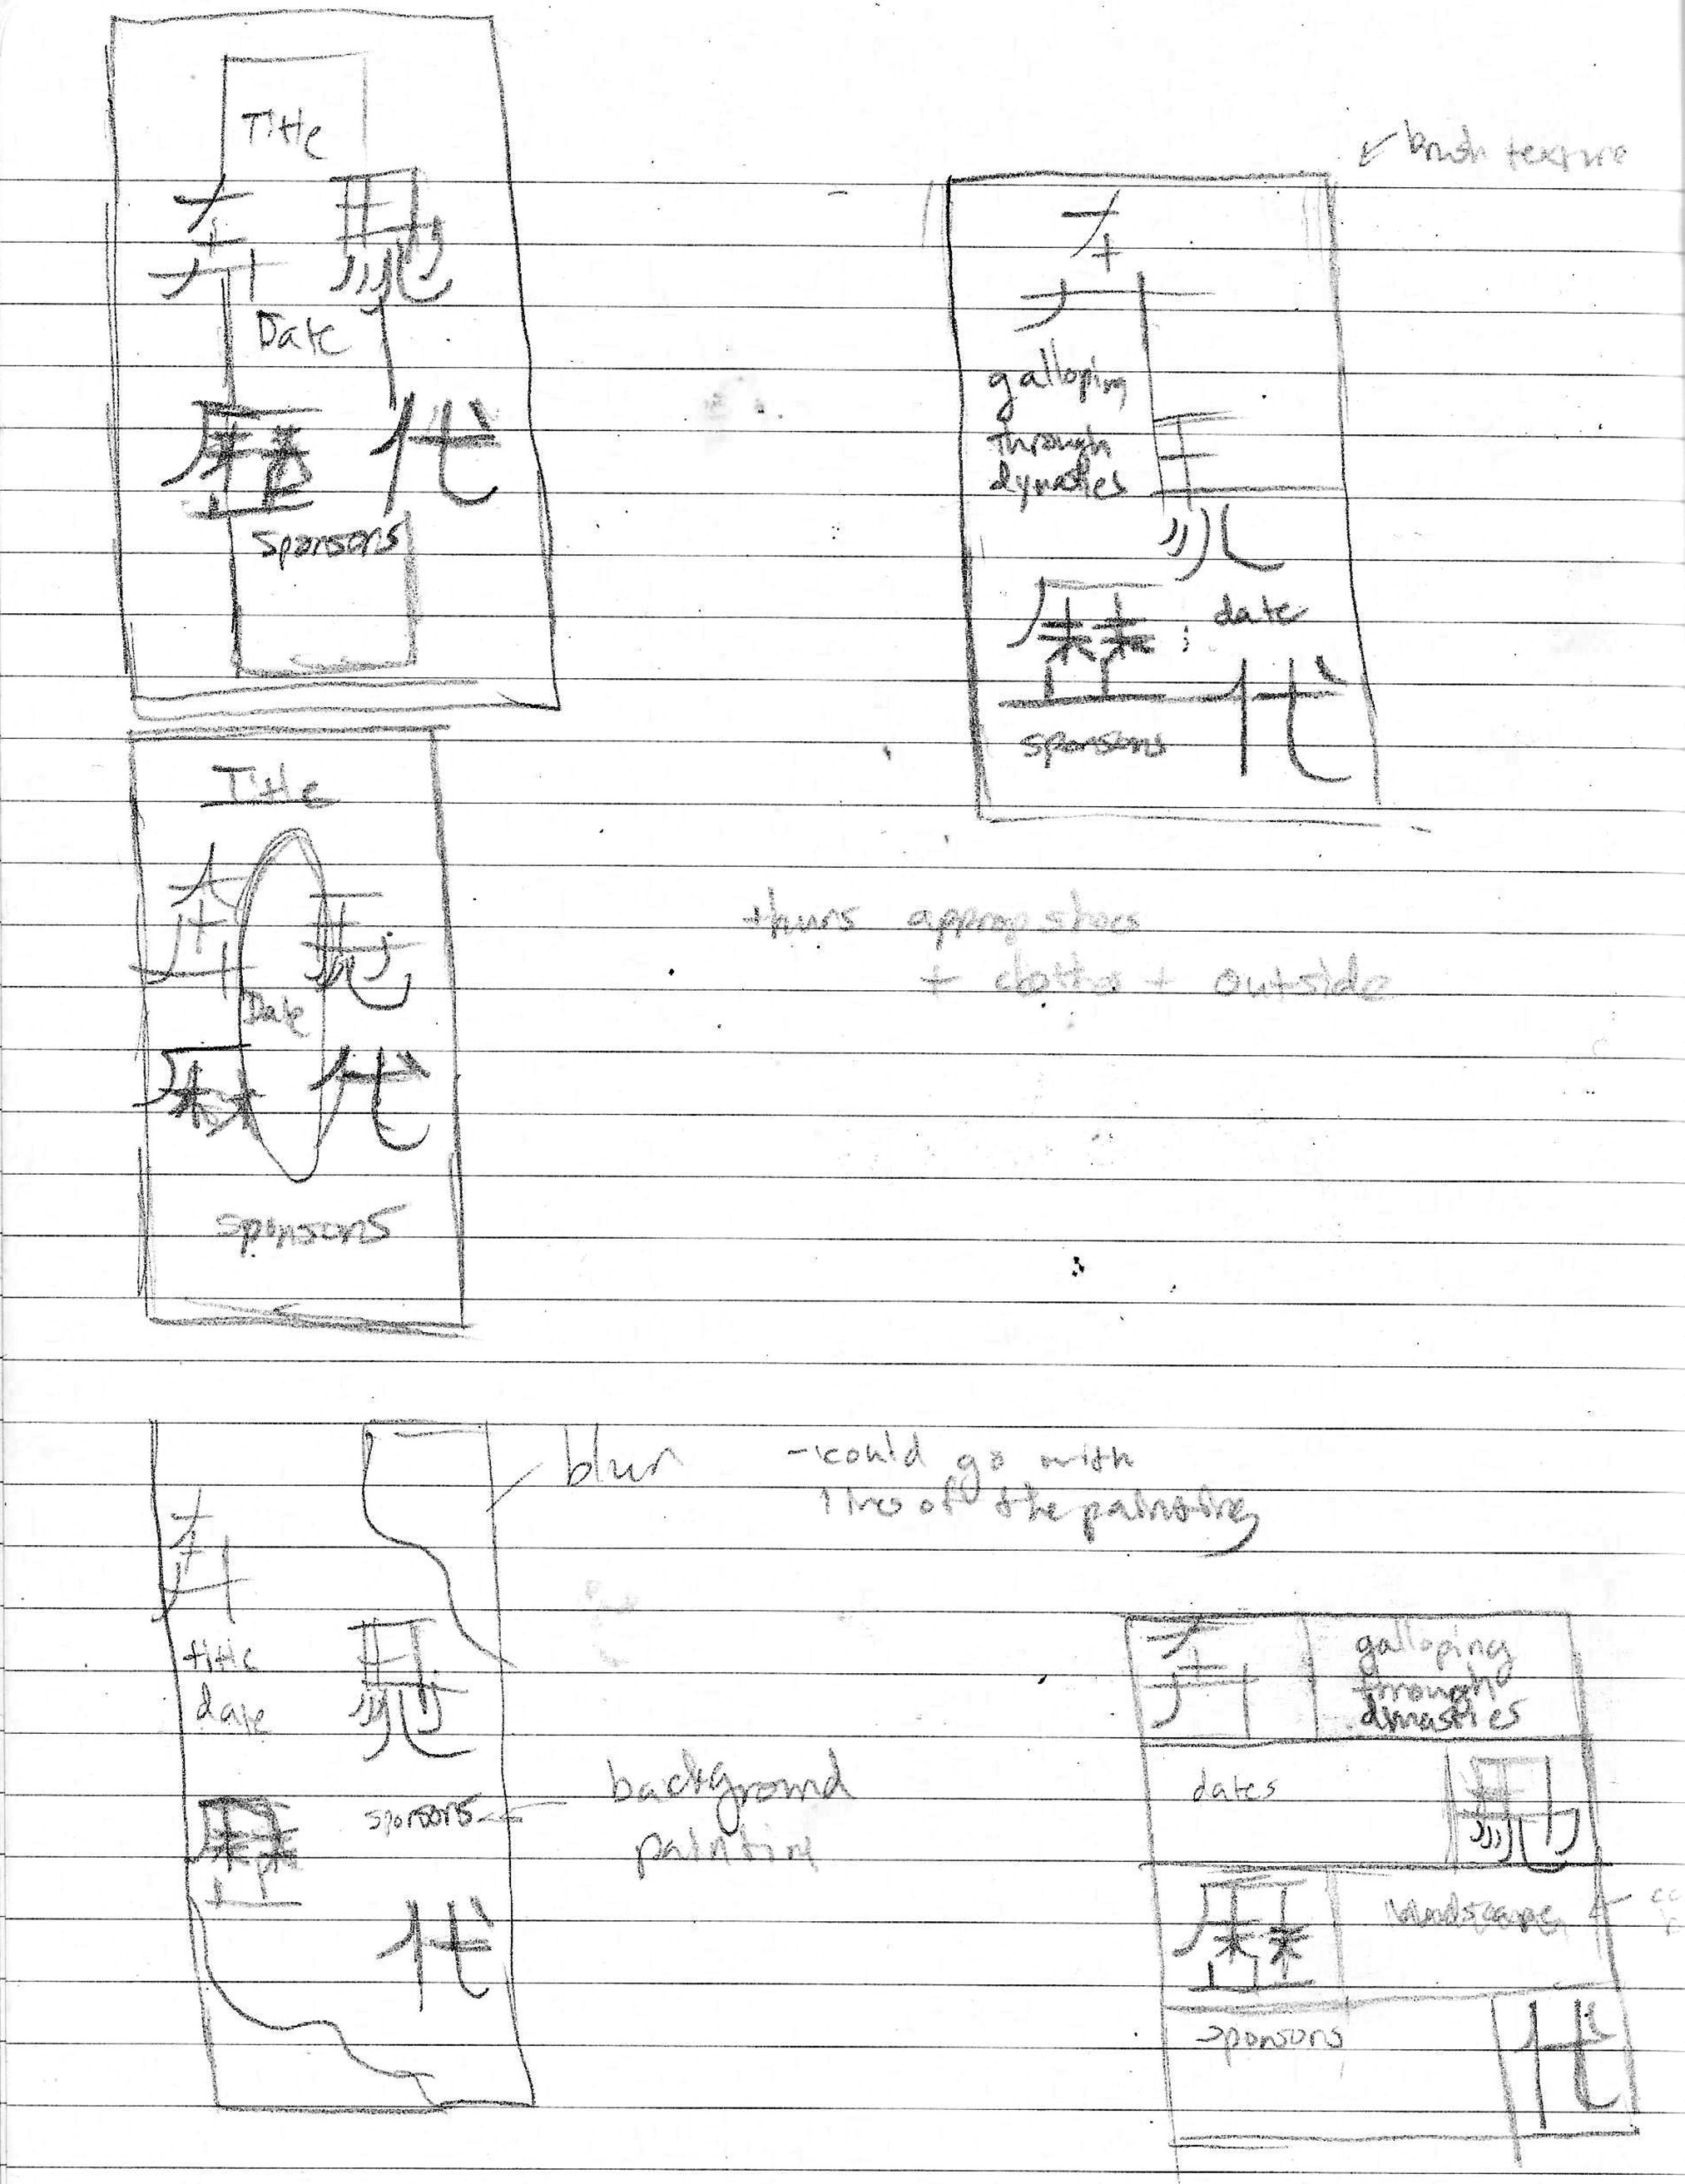 Title
奔
Date
代
sponsors
brush texture
奔
galloping
through
dynasties
date
代
sponsors
Title
奔
Date
代
sponsors
thurs approp shoes
+ clothes + outside
blur
- could go with
lines of the painting
奔
title
date
sponsors
代
background
painting
奔
galloping
through
dinasties
dates
landscape
sponsors
代